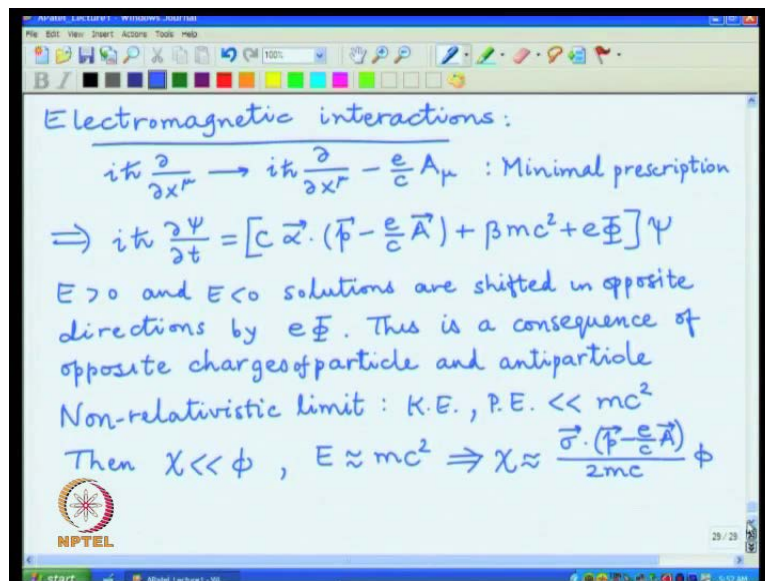 APatel_Lecture1 - Windows Journal
File Edit View Insert Actions Tools Help
100%
B I
Electromagnetic interactions:
iħ ∂/∂x^μ → iħ ∂/∂x^μ - e/c A_μ : Minimal prescription
⇒ iħ ∂Ψ/∂t = [c α⃗·(p⃗ - e/c A⃗) + βmc² + eΦ]Ψ
E > 0 and E < 0 solutions are shifted in opposite
directions by eΦ. This is a consequence of
opposite charges of particle and antiparticle
Non-relativistic limit : K.E., P.E. << mc²
Then χ << φ , E ≈ mc² ⇒ χ ≈ σ⃗·(p⃗ - e/c A⃗)/2mc φ
NPTEL
29 / 29
start
5:52 AM